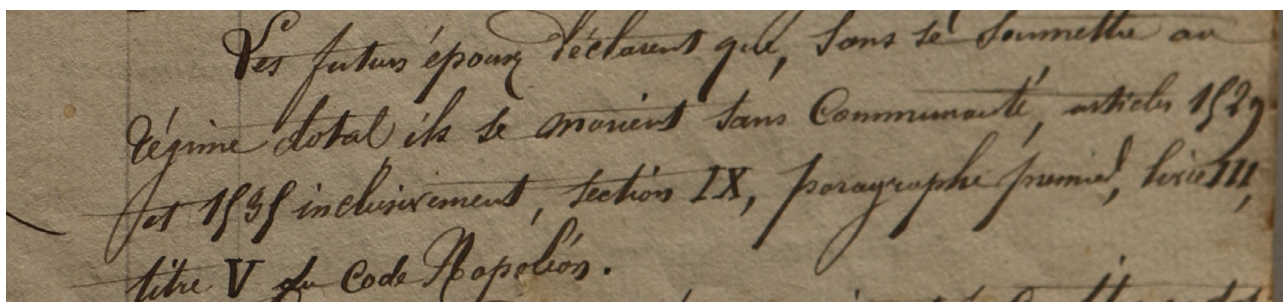 Les futurs époux déclarent que, sans se soumettre au
régime dotal ils se marient sans Communauté, articles 1529
et 1535 inclusivement, section IX, paragraphe premier, livre III,
titre V du Code Napoléon.